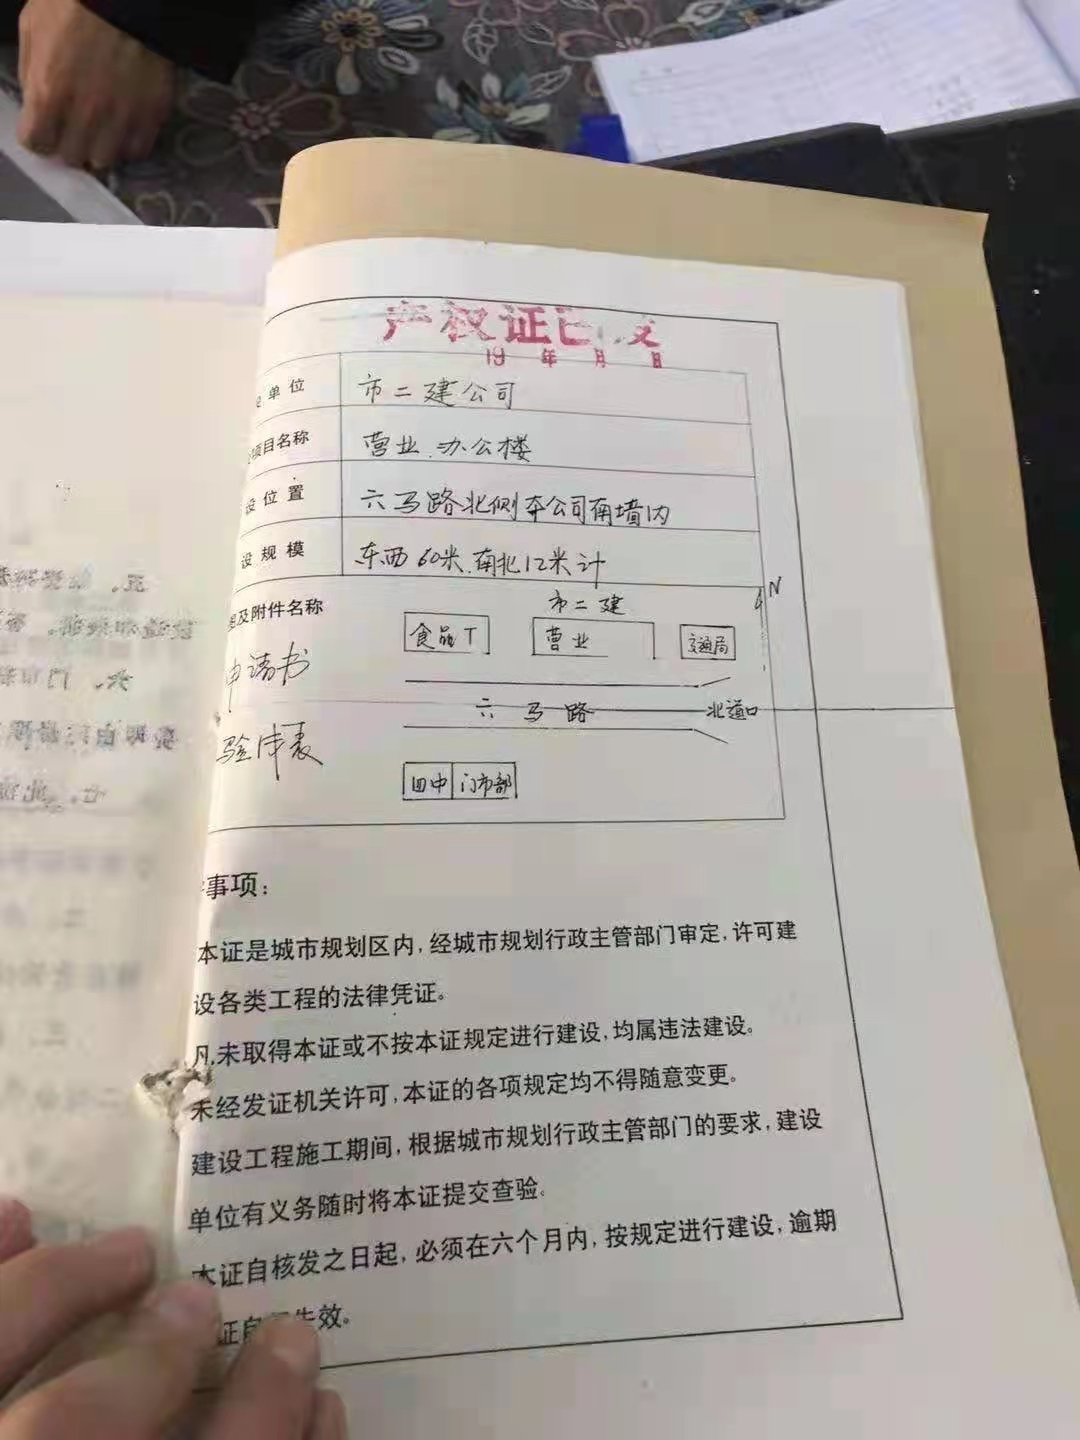 产权证已发
19 年 月 日
单位 市二建公司
项目名称 营业.办公楼
设位置 六马路北侧夲公司南墙内
设规模 东西60米.南北12米计
及附件名称
申请书
N
市二建
食品厂 营业 交通局
六马路 北道口
四中 门市部
事项：
本证是城市规划区内，经城市规划行政主管部门审定，许可建
设各类工程的法律凭证。
凡未取得本证或不按本证规定进行建设，均属违法建设。
未经发证机关许可，本证的各项规定均不得随意变更。
建设工程施工期间，根据城市规划行政主管部门的要求，建设
单位有义务随时将本证提交查验。
本证自核发之日起，必须在六个月内，按规定进行建设，逾期
证自 失效。